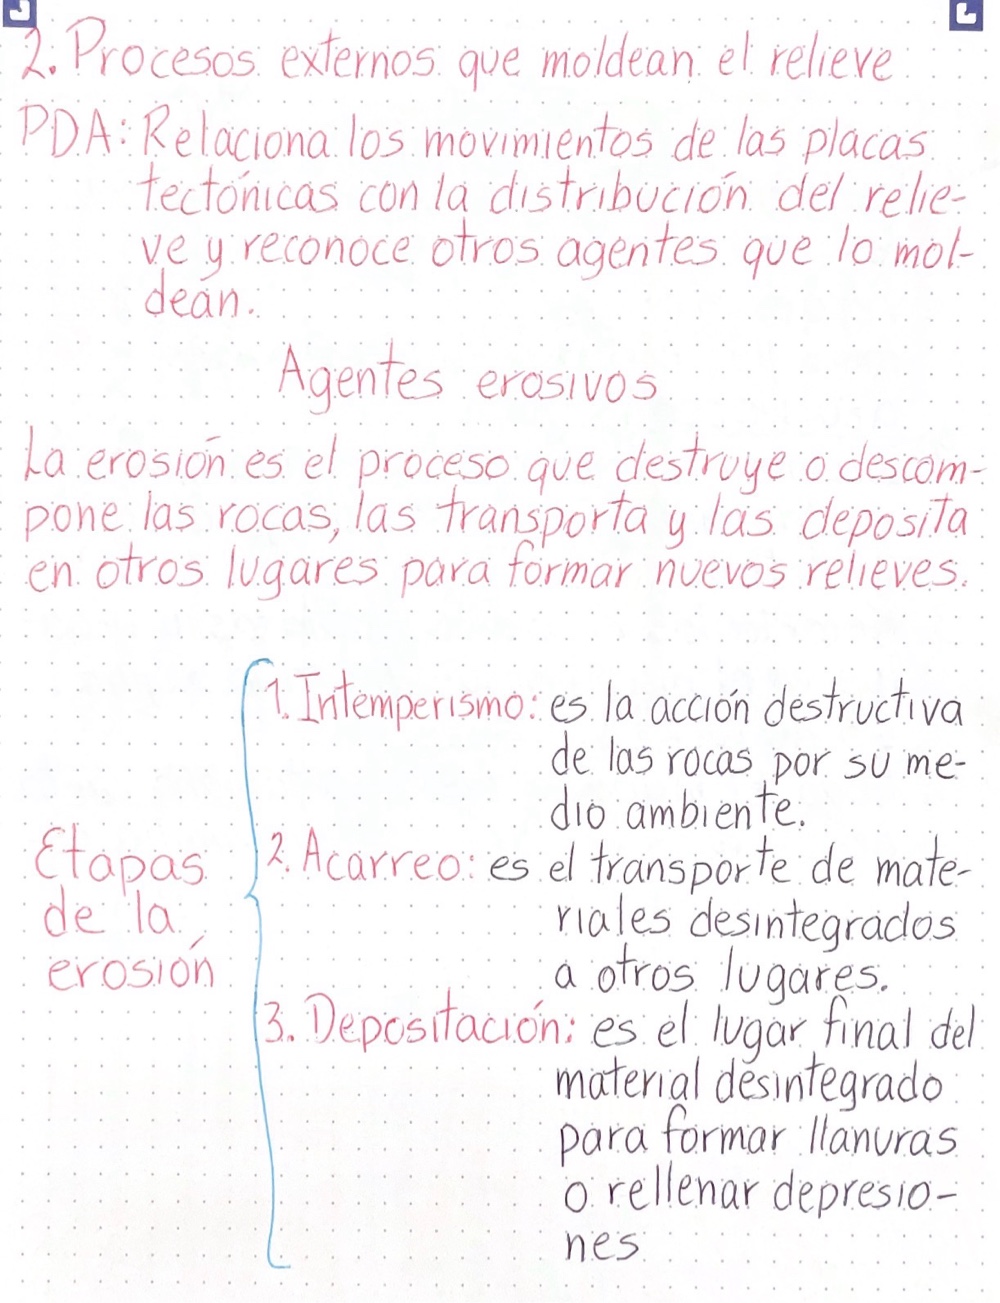 2. Procesos externos que moldean el relieve
PDA: Relaciona los movimientos de las placas
tectónicas con la distribución del relie-
ve y reconoce otros agentes que lo mol-
dean.
Agentes erosivos
La erosión es el proceso que destruye o descom-
pone las rocas, las transporta y las deposita
en otros lugares para formar nuevos relieves.
Etapas
de la
erosión
1. Intemperismo: es la acción destructiva
de las rocas por su me-
dio ambiente.
2. Acarreo: es el transporte de mate-
riales desintegrados
a otros lugares.
3. Depositación: es el lugar final del
material desintegrado
para formar llanuras
o rellenar depresio-
nes